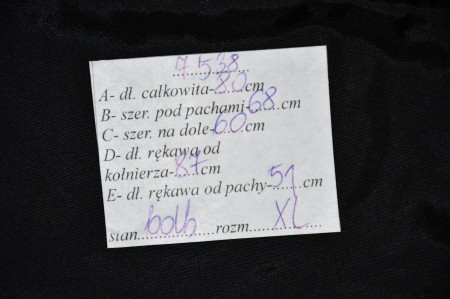 7538
A- dł. całkowita-80cm
B- szer. pod pachami-68cm
C- szer. na dole-60cm
D- dł. rękawa od
kołnierza-87cm
E- dł. rękawa od pachy-51cm
stan.......rozm. XL